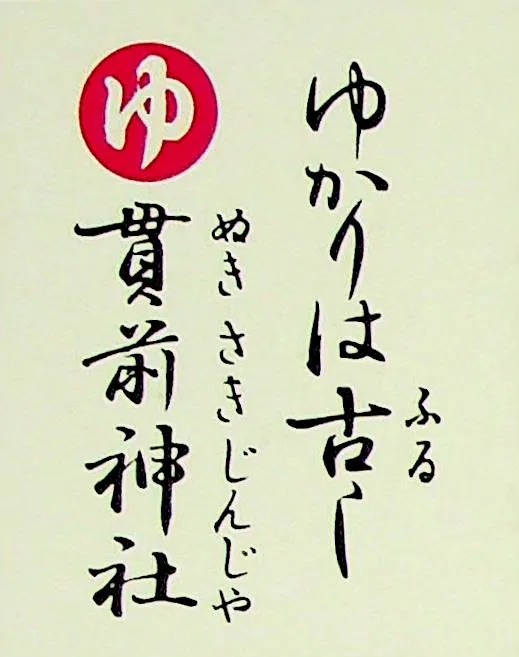 ゆかりは古し
ふる
ゆ
貫前神社
ぬきさきじんじや